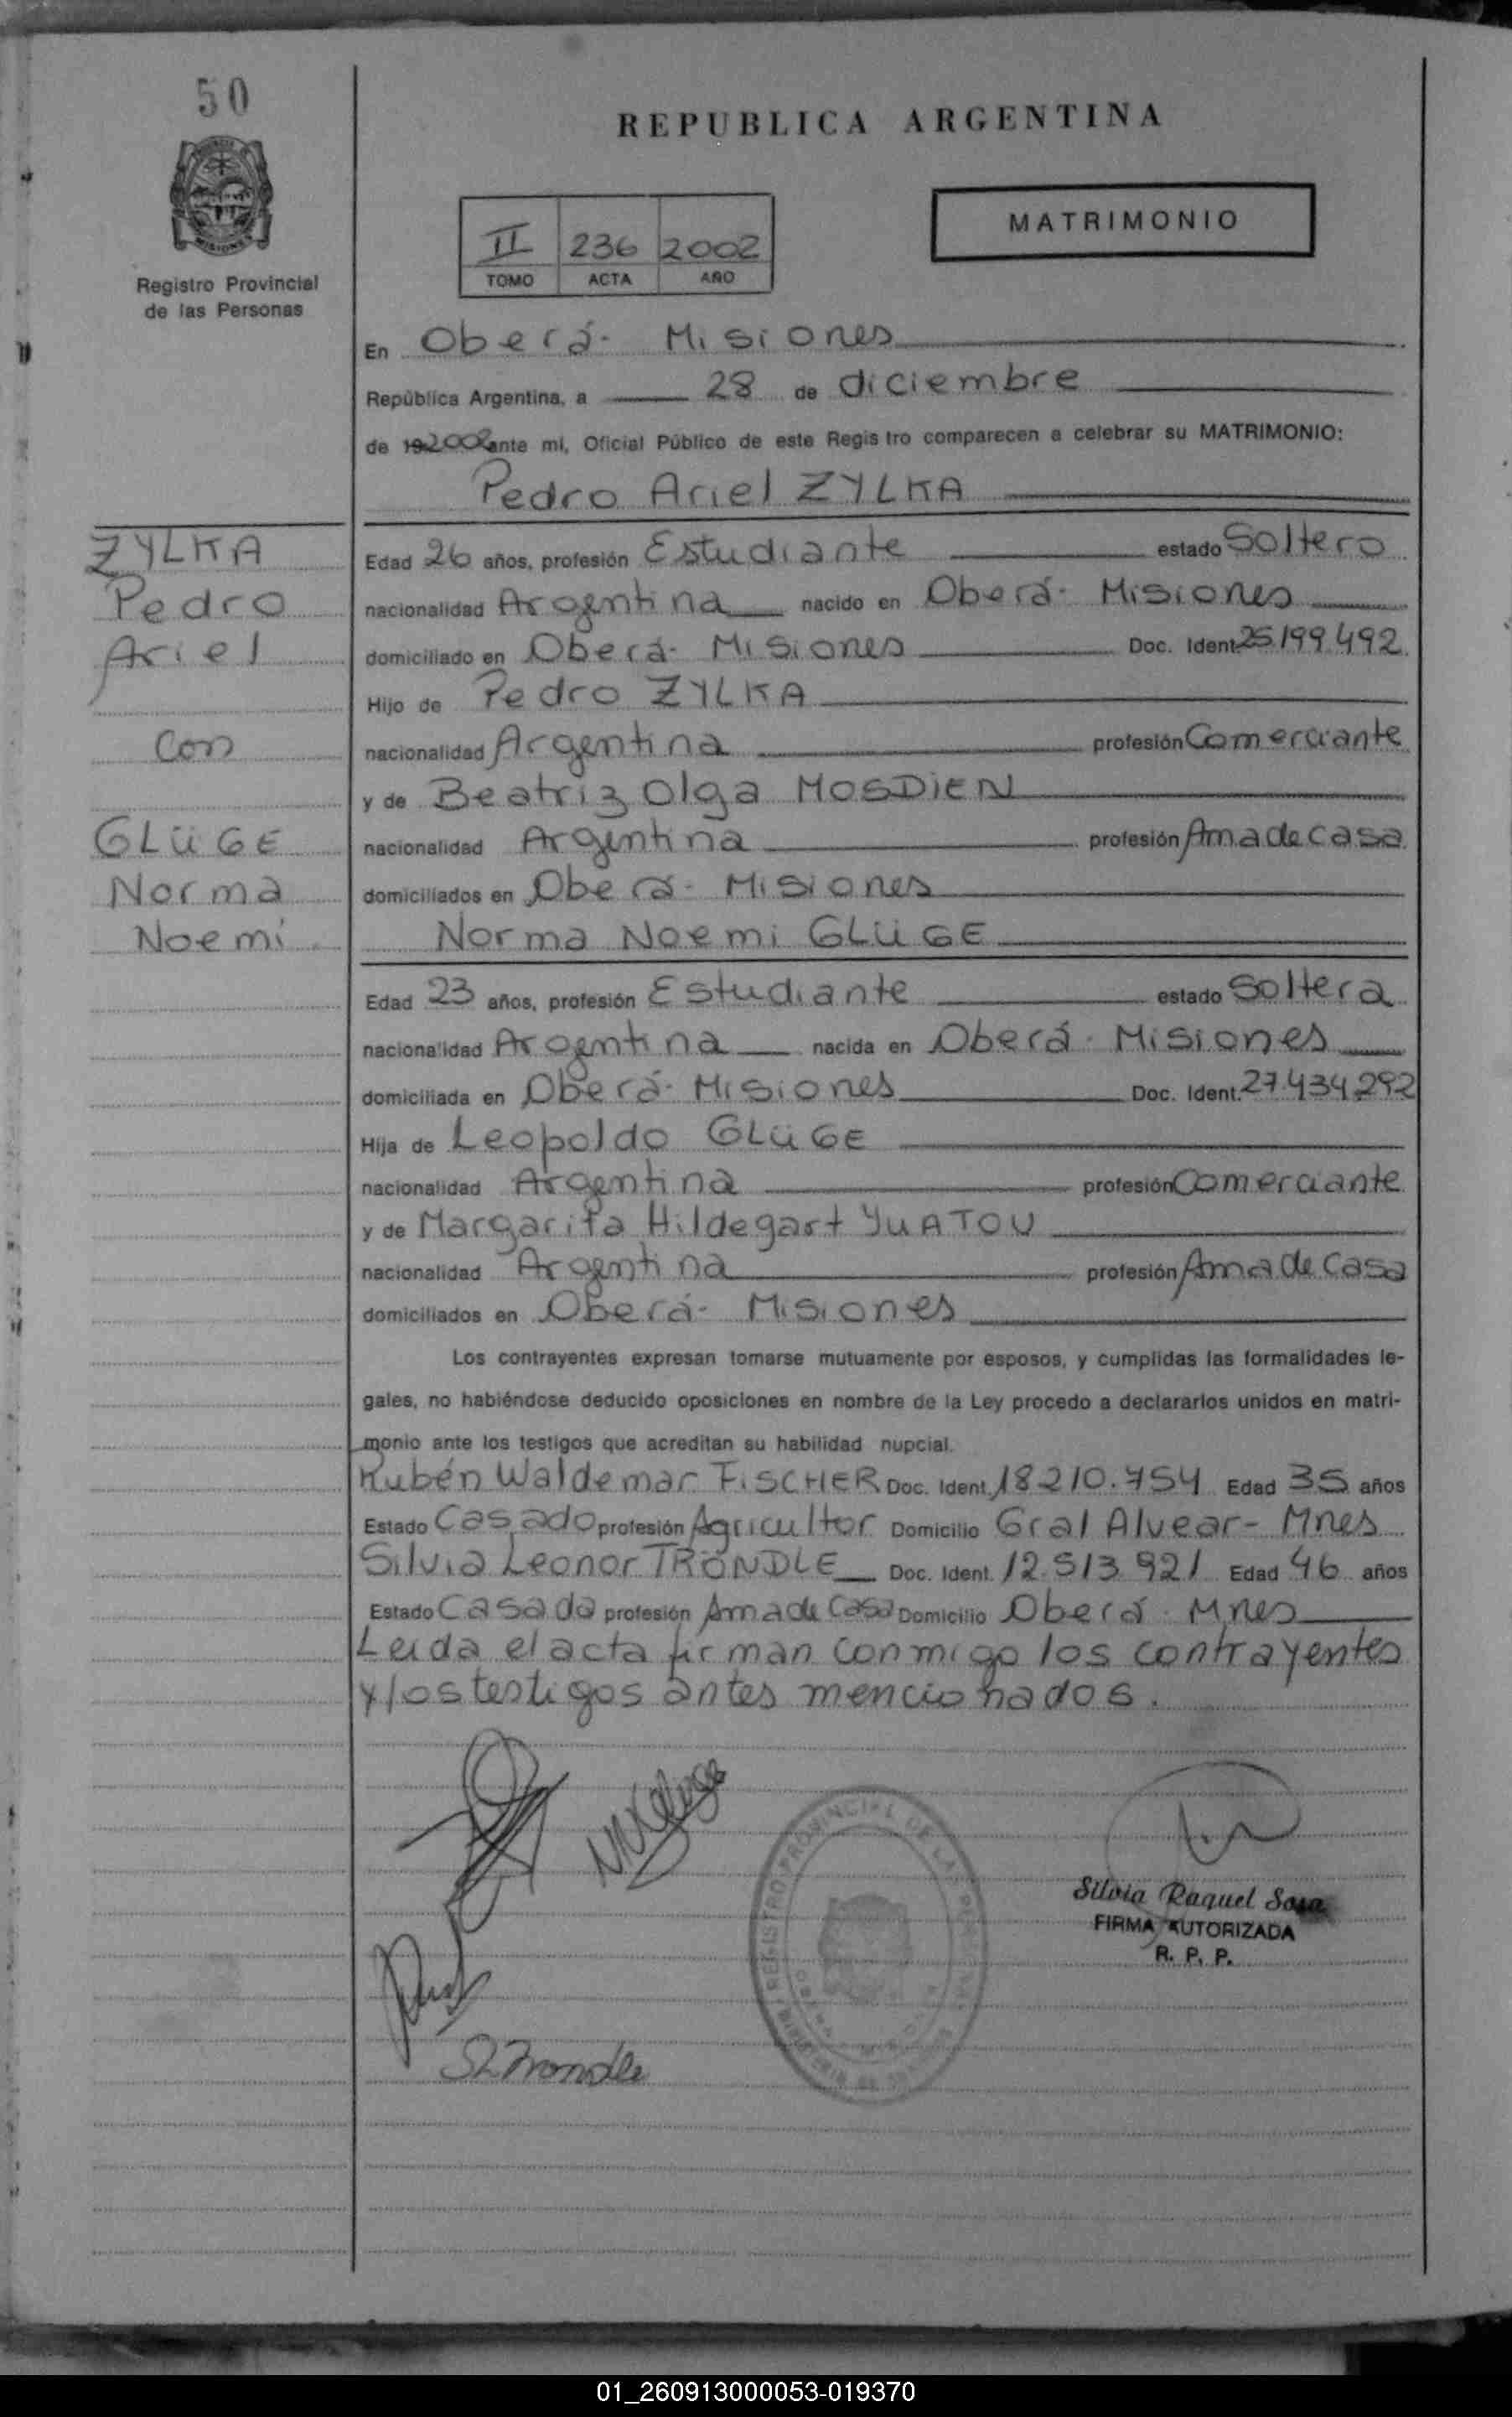 50
REPUBLICA ARGENTINA
MATRIMONIO
II 236 2002
TOMO ACTA AÑO
Registro Provincial
de las Personas
En Oberá- Misiones
República Argentina, a 28 de diciembre
de 19 2002 ante mi, Oficial Público de este Regis tro comparecen a celebrar su MATRIMONIO:
Pedro Ariel ZYLKA
ZYLKA
Pedro
Ariel
con
GLÜGE
Norma
Noemi
Edad 26 años, profesión Estudiante estado Soltero
nacionalidad Argentina nacido en Oberá- Misiones
domiciliado en Oberá- Misiones Doc. Ident. 25.199.492
Hijo de Pedro ZYLKA
nacionalidad Argentina profesión Comerciante
y de Beatriz Olga MOSDIEN
nacionalidad Argentina profesión Ama de casa
domiciliados en Oberá- Misiones
Norma Noemi GLÜGE
Edad 23 años, profesión Estudiante estado Soltera
nacionalidad Argentina nacida en Oberá- Misiones
domiciliada en Oberá- Misiones Doc. Ident. 27.434.292
Hija de Leopoldo GLÜGE
nacionalidad Argentina profesión Comerciante
y de Margarita Hildegart YUATOU
nacionalidad Argentina profesión Ama de Casa
domiciliados en Oberá- Misiones
Los contrayentes expresan tomarse mutuamente por esposos, y cumplidas las formalidades le-
gales, no habiéndose deducido oposiciones en nombre de la Ley procedo a declararlos unidos en matri-
monio ante los testigos que acreditan su habilidad nupcial.
Rubén Waldemar FISCHER Doc. Ident. 18.210.754 Edad 35 años
Estado Casado profesión Agricultor Domicilio Gral Alvear- Mnes
Silvia Leonor TRÖNDLE Doc. Ident. 12.513.921 Edad 46 años
Estado Casada profesión Ama de Casa Domicilio Oberá- Mnes
Leida el acta firman conmigo los contrayentes
y los testigos antes mencionados.
NNGluge
REGISTRO PROVINCIAL DE LAS PERSONAS
Silvia Raquel Sosa
FIRMA AUTORIZADA
R. P. P.
SLTrondle
01_260913000053-019370